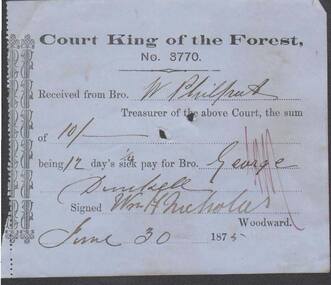 Court King of the Forest,
No. 3770.
Received from Bro. W Philpert
Treasurer of the above Court, the sum
of 10/-
being 12 day's sick pay for Bro. George
Signed Wm H Nicholas
Woodward.
June 30 1875